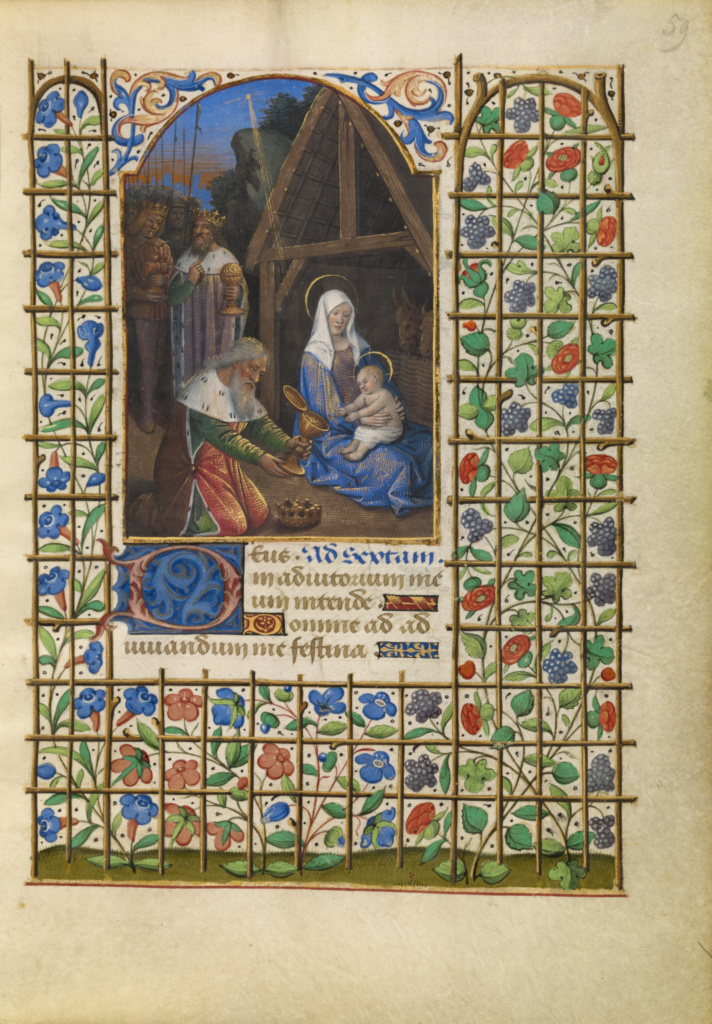 59
Deus · Ad Septam .
in adiutorium me
um intende
Domine ad ad
iuuandum me festina